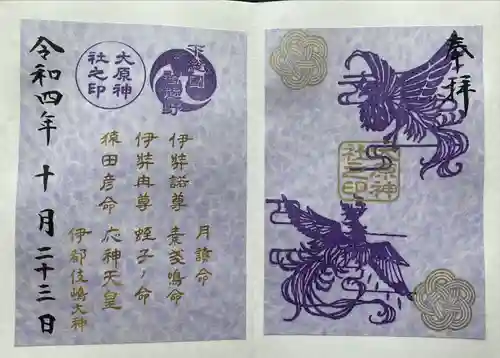 奉拝
大原神
社之印
下総國
習志野
大原神
社之印
月讀命
伊弉諾尊 素戔鳴命
伊弉冉尊 蛭子ノ命
猿田彦命 応神天皇
伊都伎嶋大神
令和四年 十月二十三日